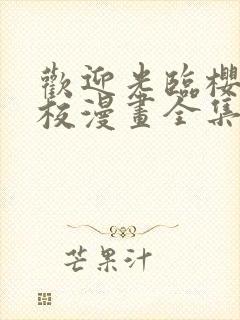 歡迎光臨櫻
板漫畫全集
芒果汁